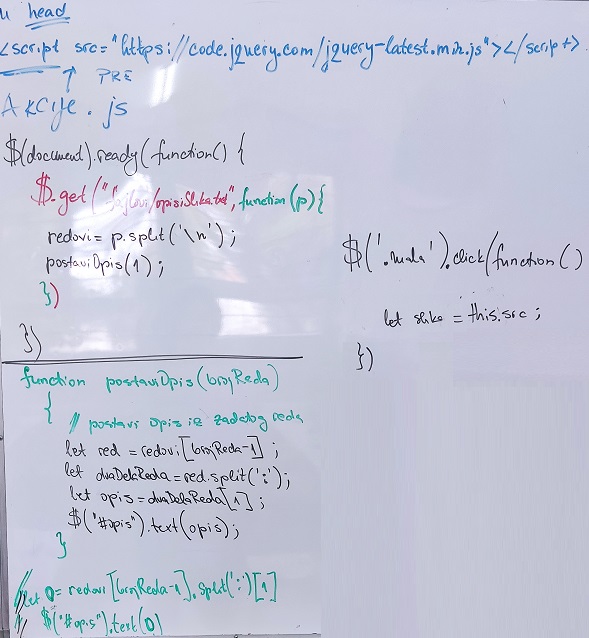 u head
<script src="https://code.jquery.com/jquery-latest.min.js"></script>
PRE
Akcije.js
$(document).ready(function() {
$.get("fajlovi/opisiSlika.txt", function(p){
redovi = p.split('\n');
postaviOpis(1);
})
})
function postaviOpis(brojReda)
{
// postavi opis iz zadatog reda
let red = redovi[brojReda-1];
let dvaDelaReda = red.split(':');
let opis = dvaDelaReda[1];
$("#opis").text(opis);
}
// let O = redovi[brojReda-1].split(':')[1]
// $("#opis").text(O)
$('.mala').click(function()
let slike = this.src;
})